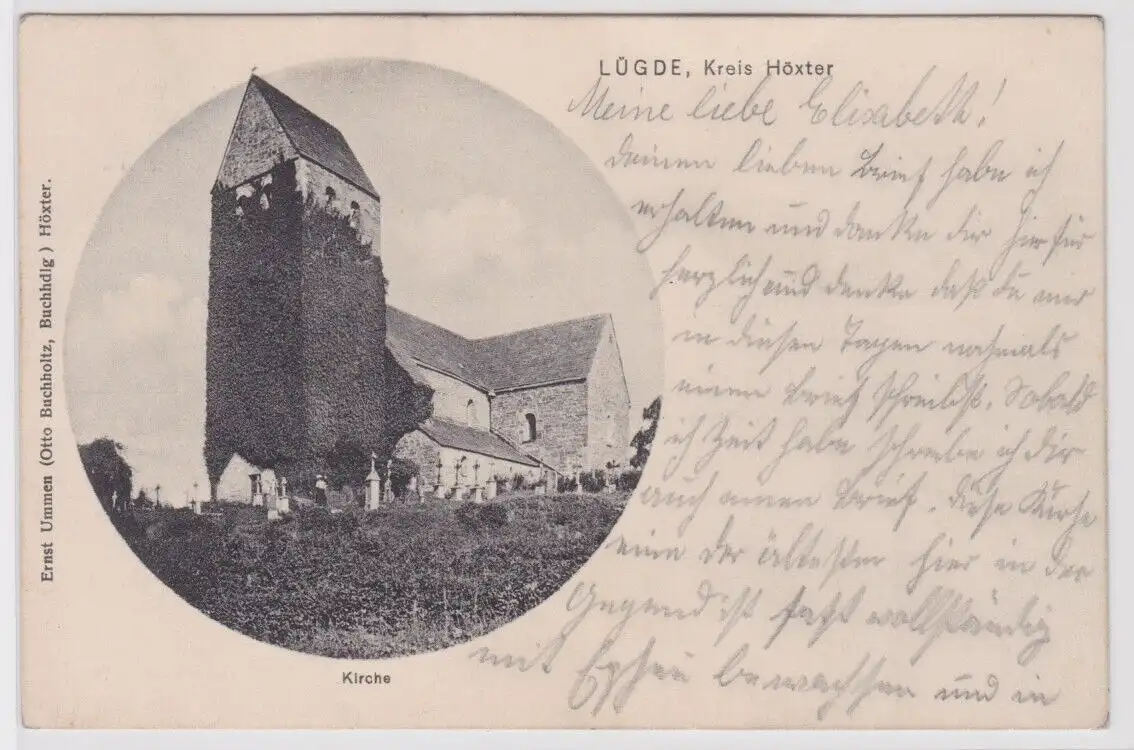 LÜGDE, Kreis Höxter
Meine liebe Elisabeth!
deinen lieben Brief habe ich
erhalten und danke dir hierfür
herzlich und denke daß du mir
in diesen Tagen nochmals
einen Brief schreibst. Sobald
ich Zeit habe schreibe ich dir
auch einen Brief. Diese Kirche
eine der ältesten hier in der
Gegend ist jetzt vollständig
mit Epheu bewachsen und in
Kirche
Ernst Ummen (Otto Buchholtz, Buchhdlg) Höxter.